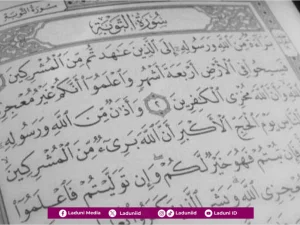 سُورَةُ التَّوْبَةِ
سُورَةُ التَّوْبَةِ
بَرَآءَةٌ مِّنَ ٱللَّهِ وَرَسُولِهِۦٓ إِلَى ٱلَّذِينَ عَٰهَدتُّم مِّنَ ٱلْمُشْرِكِينَ
فَسِيحُوا۟ فِى ٱلْأَرْضِ أَرْبَعَةَ أَشْهُرٍ وَٱعْلَمُوٓا۟ أَنَّكُمْ غَيْرُ مُعْجِزِى
ٱللَّهِ وَأَنَّ ٱللَّهَ مُخْزِى ٱلْكَٰفِرِينَ ٢ وَأَذَٰنٌ مِّنَ ٱللَّهِ وَرَسُولِهِۦٓ
ٱلنَّاسِ يَوْمَ ٱلْحَجِّ ٱلْأَكْبَرِ أَنَّ ٱللَّهَ بَرِىٓءٌ مِّنَ ٱلْمُشْرِكِينَ
فَإِن تُبْتُمْ فَهُوَ خَيْرٌ لَّكُمْ وَإِن تَوَلَّيْتُمْ فَٱعْلَمُوٓا۟
مُعْجِزِى ٱللَّهِ وَبَشِّرِ
Laduni Media Laduniid Laduniid Laduni ID